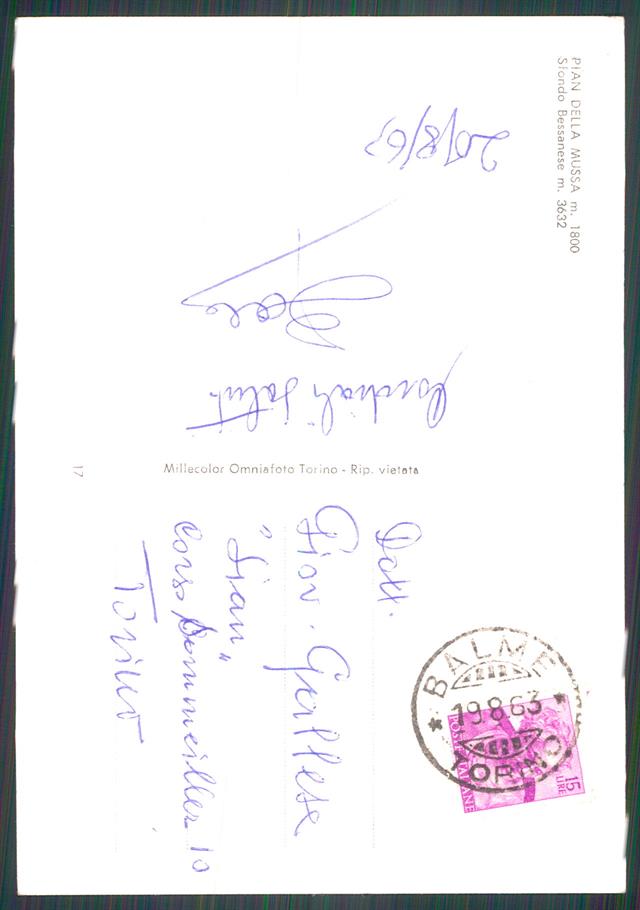 PIAN DELLA MUSSA m. 1800
Sfondo Bessanese m. 3632
20/8/63
Cordiali saluti
Millecolor Omniafoto Torino - Rip. vietata
17
Dott.
Giov.
Corso Sommeiller 10
Torino
BALME
19 8 63
TORINO
POSTE ITALIANE
15 LIRE